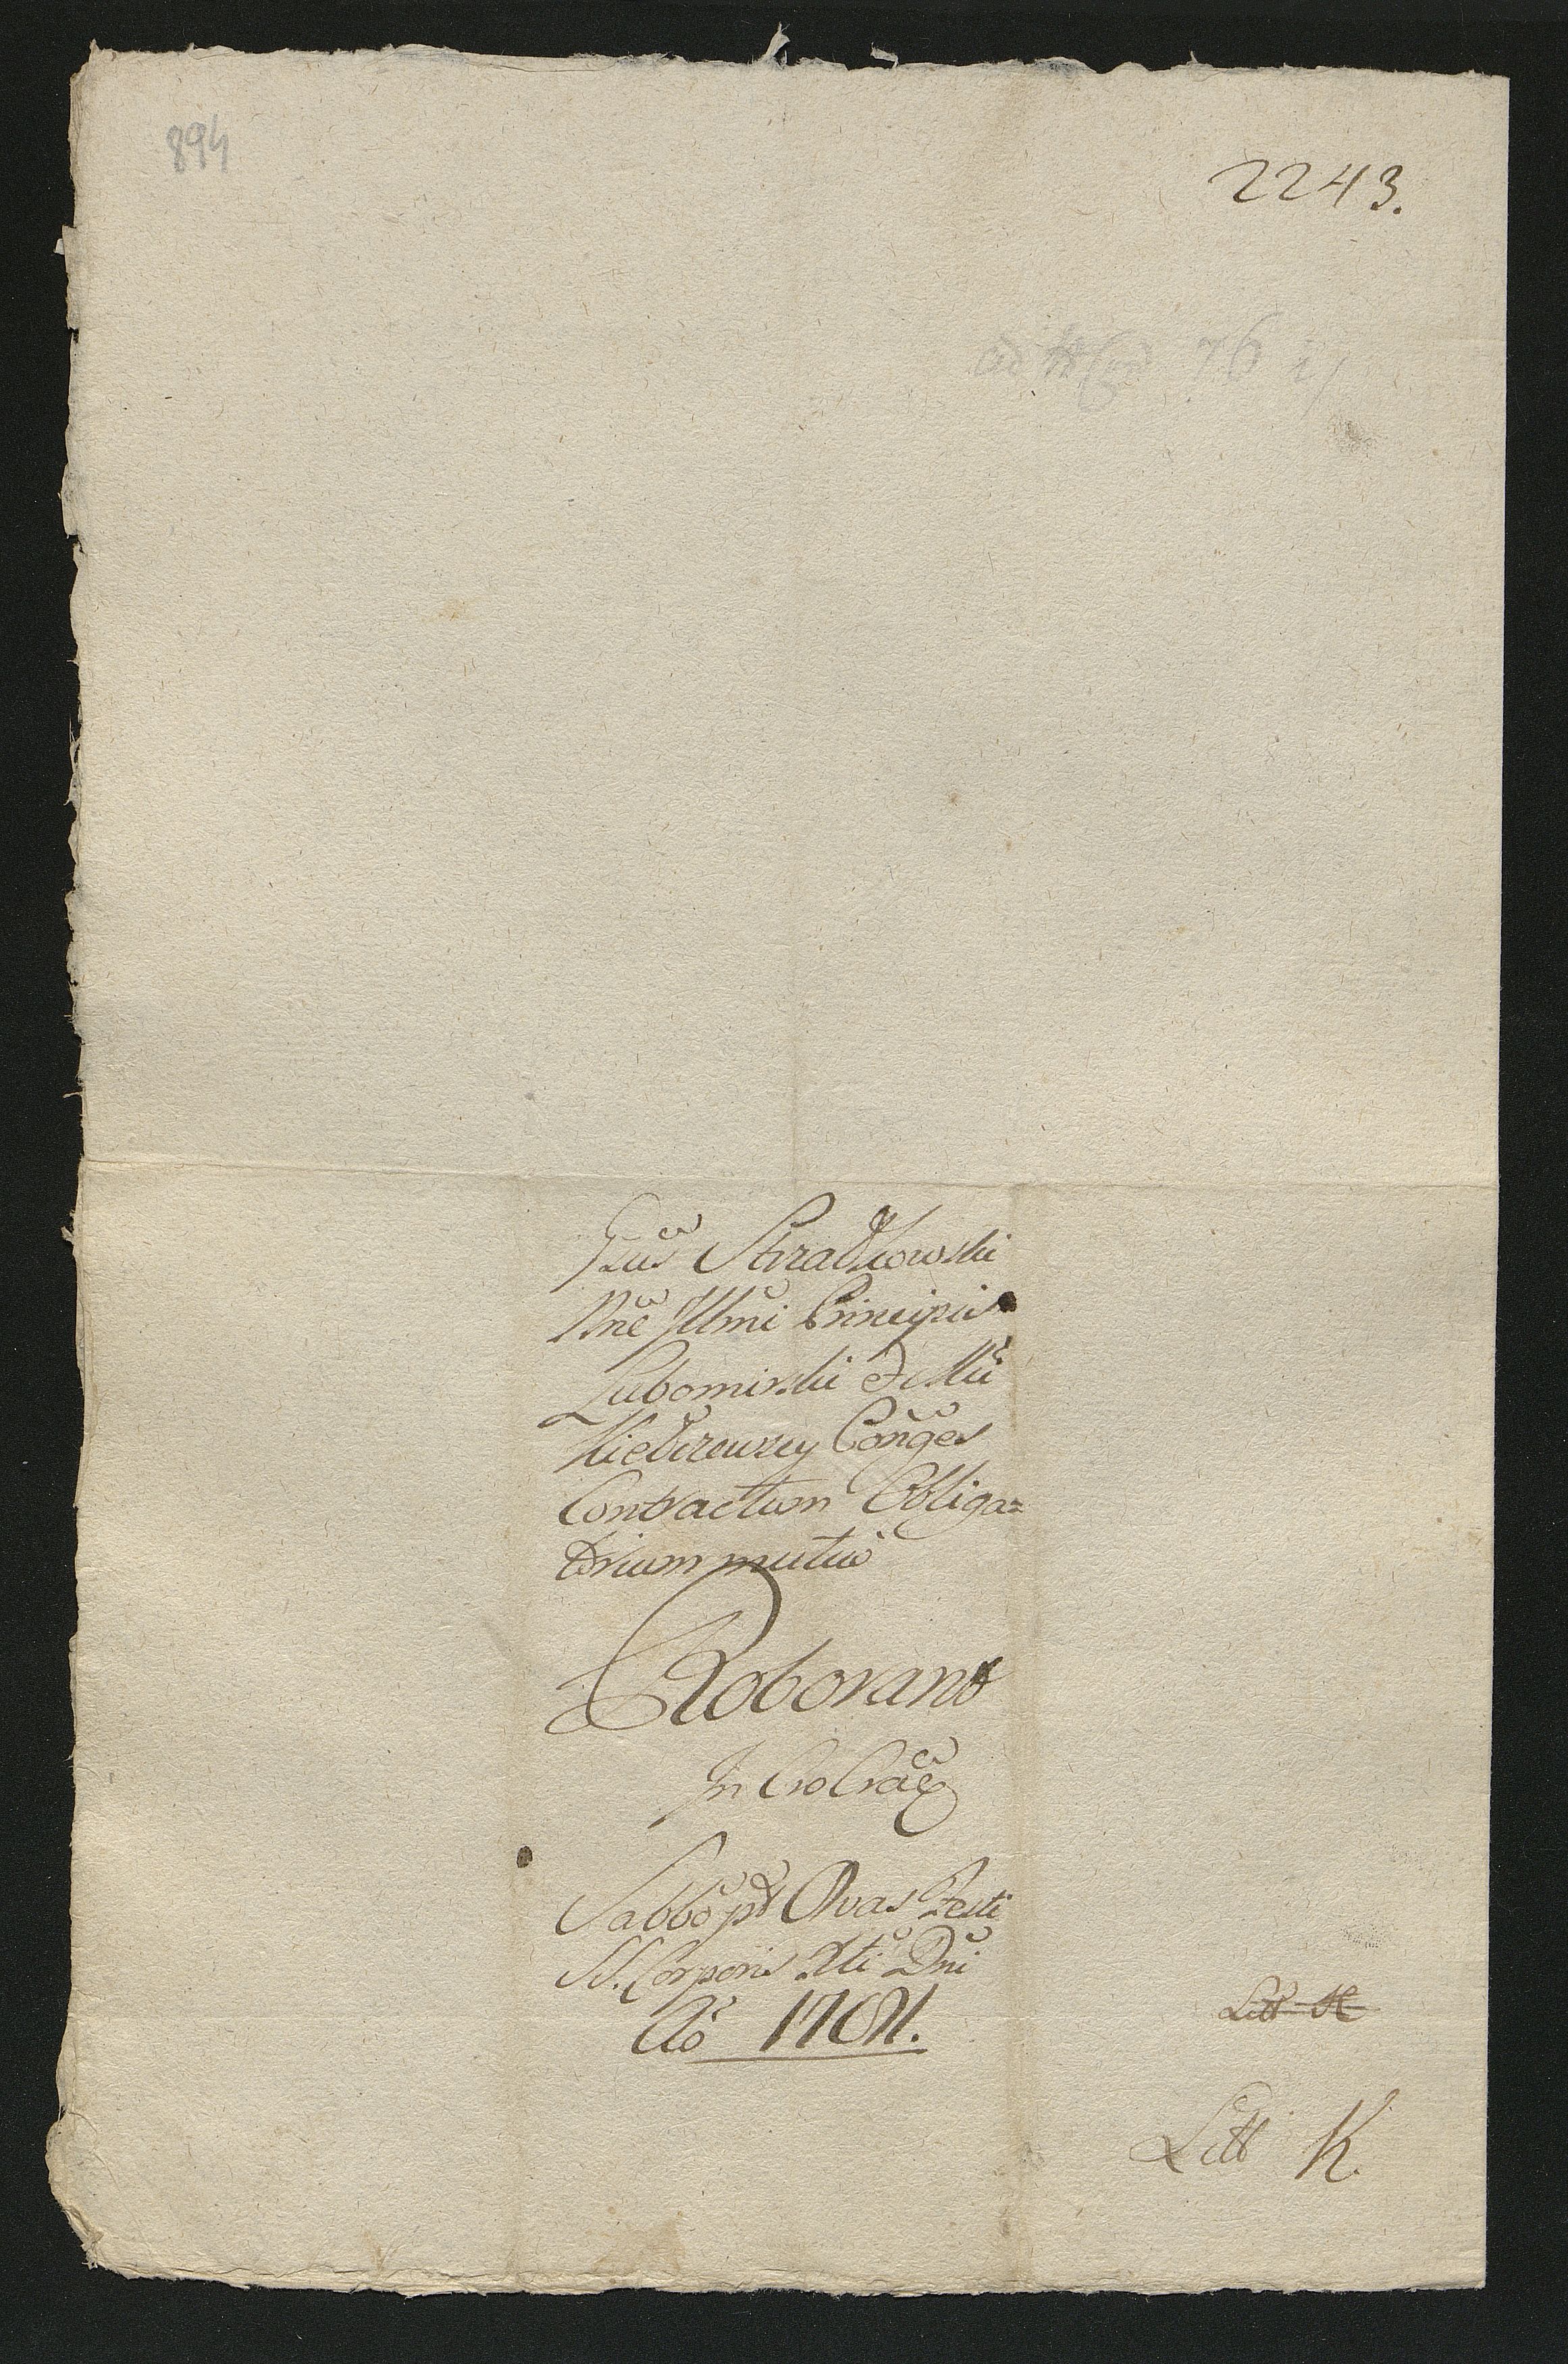 894
2243.
ad
76
Gsus Stradkowski
Nne Illmi Principis
Lubomirski et Mii
Kiedrzewscy Conges
Contractum Obliga=
torium mutuo
Roborant
In Cro Crac
Sabbo pt Ovas Festi
SS. Corporis Xti Dni
Ao 1781.
Litt H
Litt K.